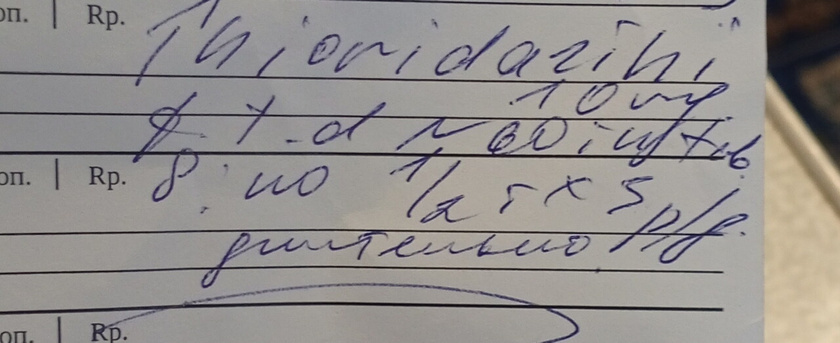 оп. | Rp. Thioridazini
10 mg
D.t.d N 60 in tab.
оп. | Rp. S. по 1/2 т х 3 р/д.
длительно
оп. | Rp.